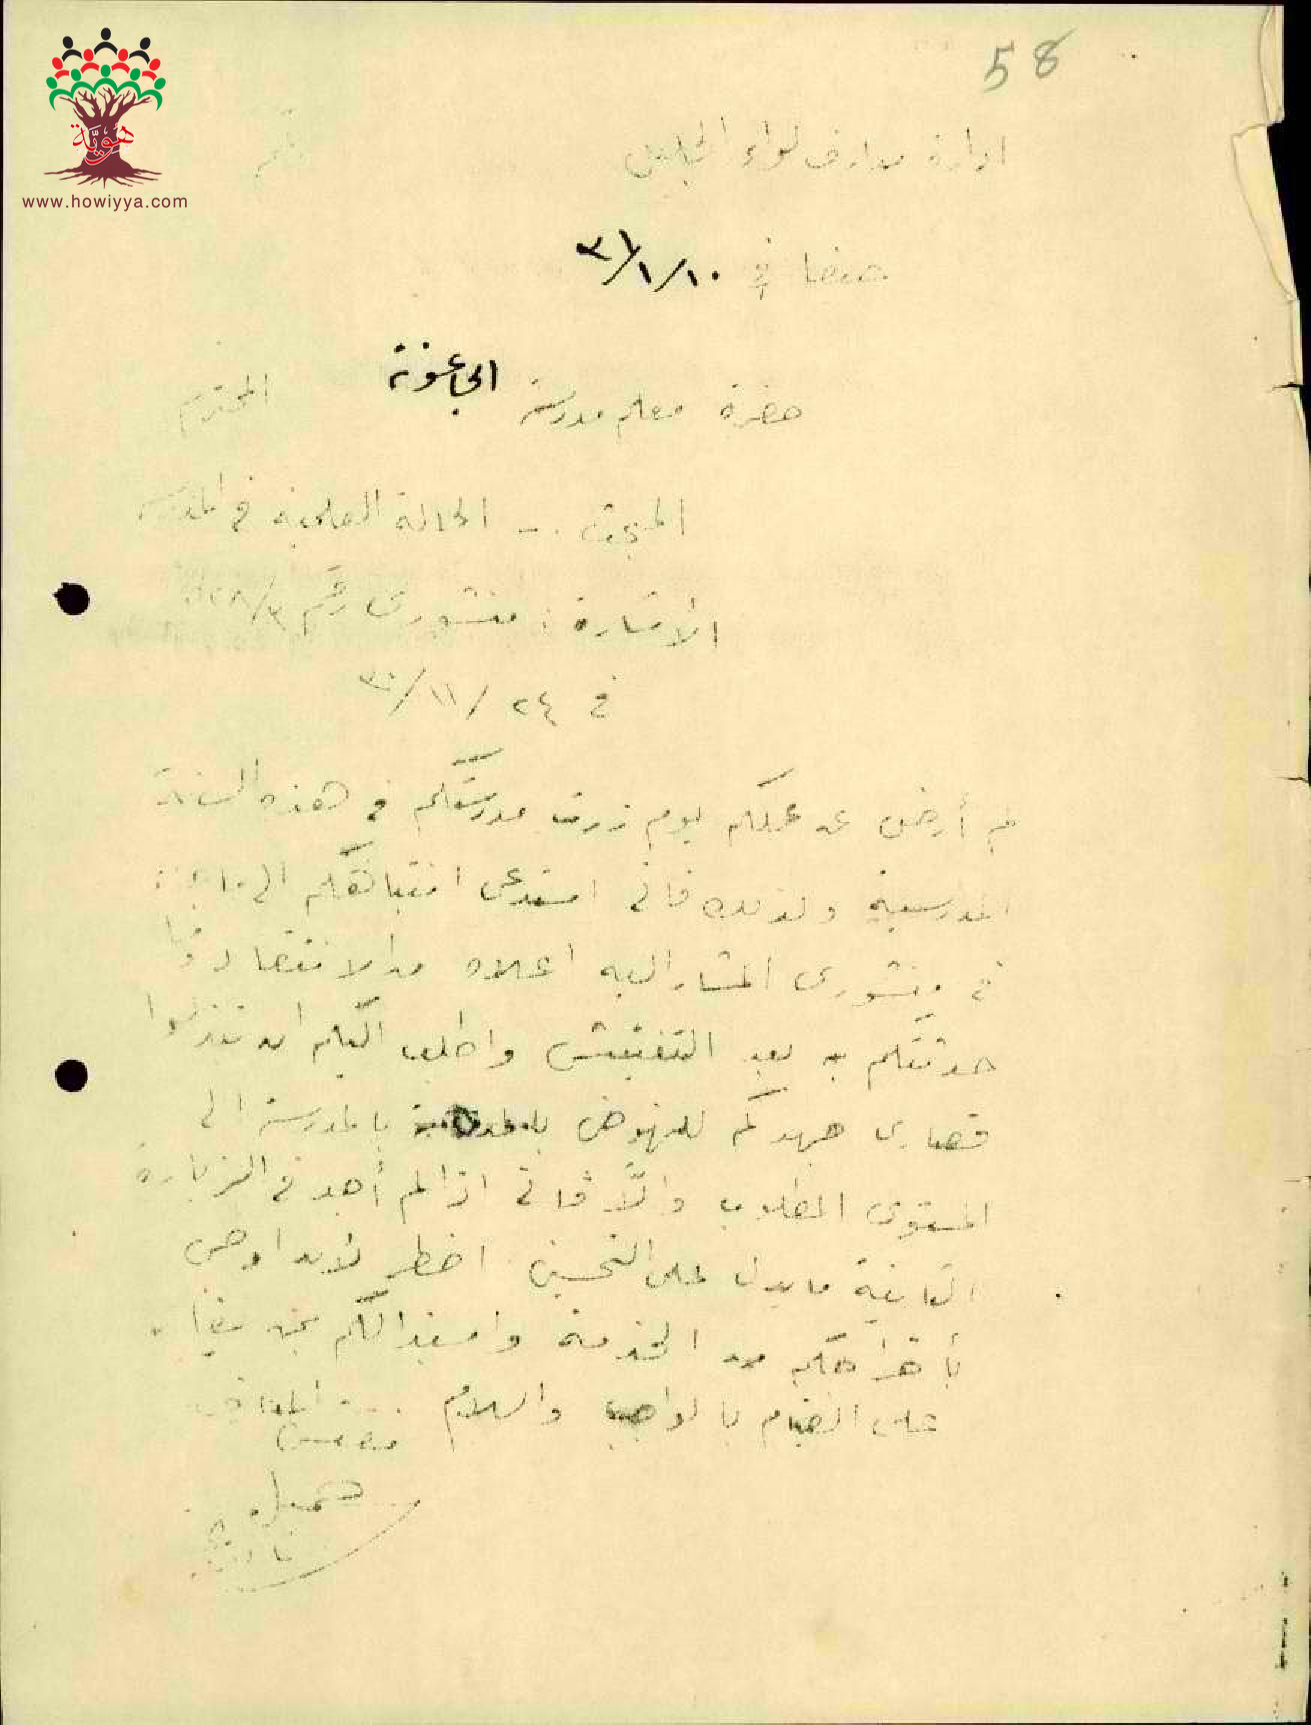 58
هوية
www.howiyya.com
ادارة معارف لواء الجليل
حيفا في ٣١/١/١٠
حضرة معلم مدرسة الجاعونة المحترم
المبحث :- الحالة العلمية في المدرسة
الاشارة : منشوري رقم ٢٨/٣
في ٢٤ /١١/ ٣٠
لم أرض عن عملكم يوم زرت مدرستكم في هذه السنة
المدرسية ولذلك فاني استدعي انتباهكم الى ما جاء
في منشوري المشار اليه اعلاه من الانتقاد وما
حدثتكم به بعد التفتيش واطلب اليكم ان تبذلوا
قصارى جهدكم للنهوض بالمدرسة الى
المستوى المطلوب والّا فاني اذا لم أجد في الزيارة
الثانية ما يدل على التحسين اضطر لان اوصي
بأخراجكم من الخدمة واستبدالكم بمن
على القيام بالواجب والسلام
مفتش المعارف